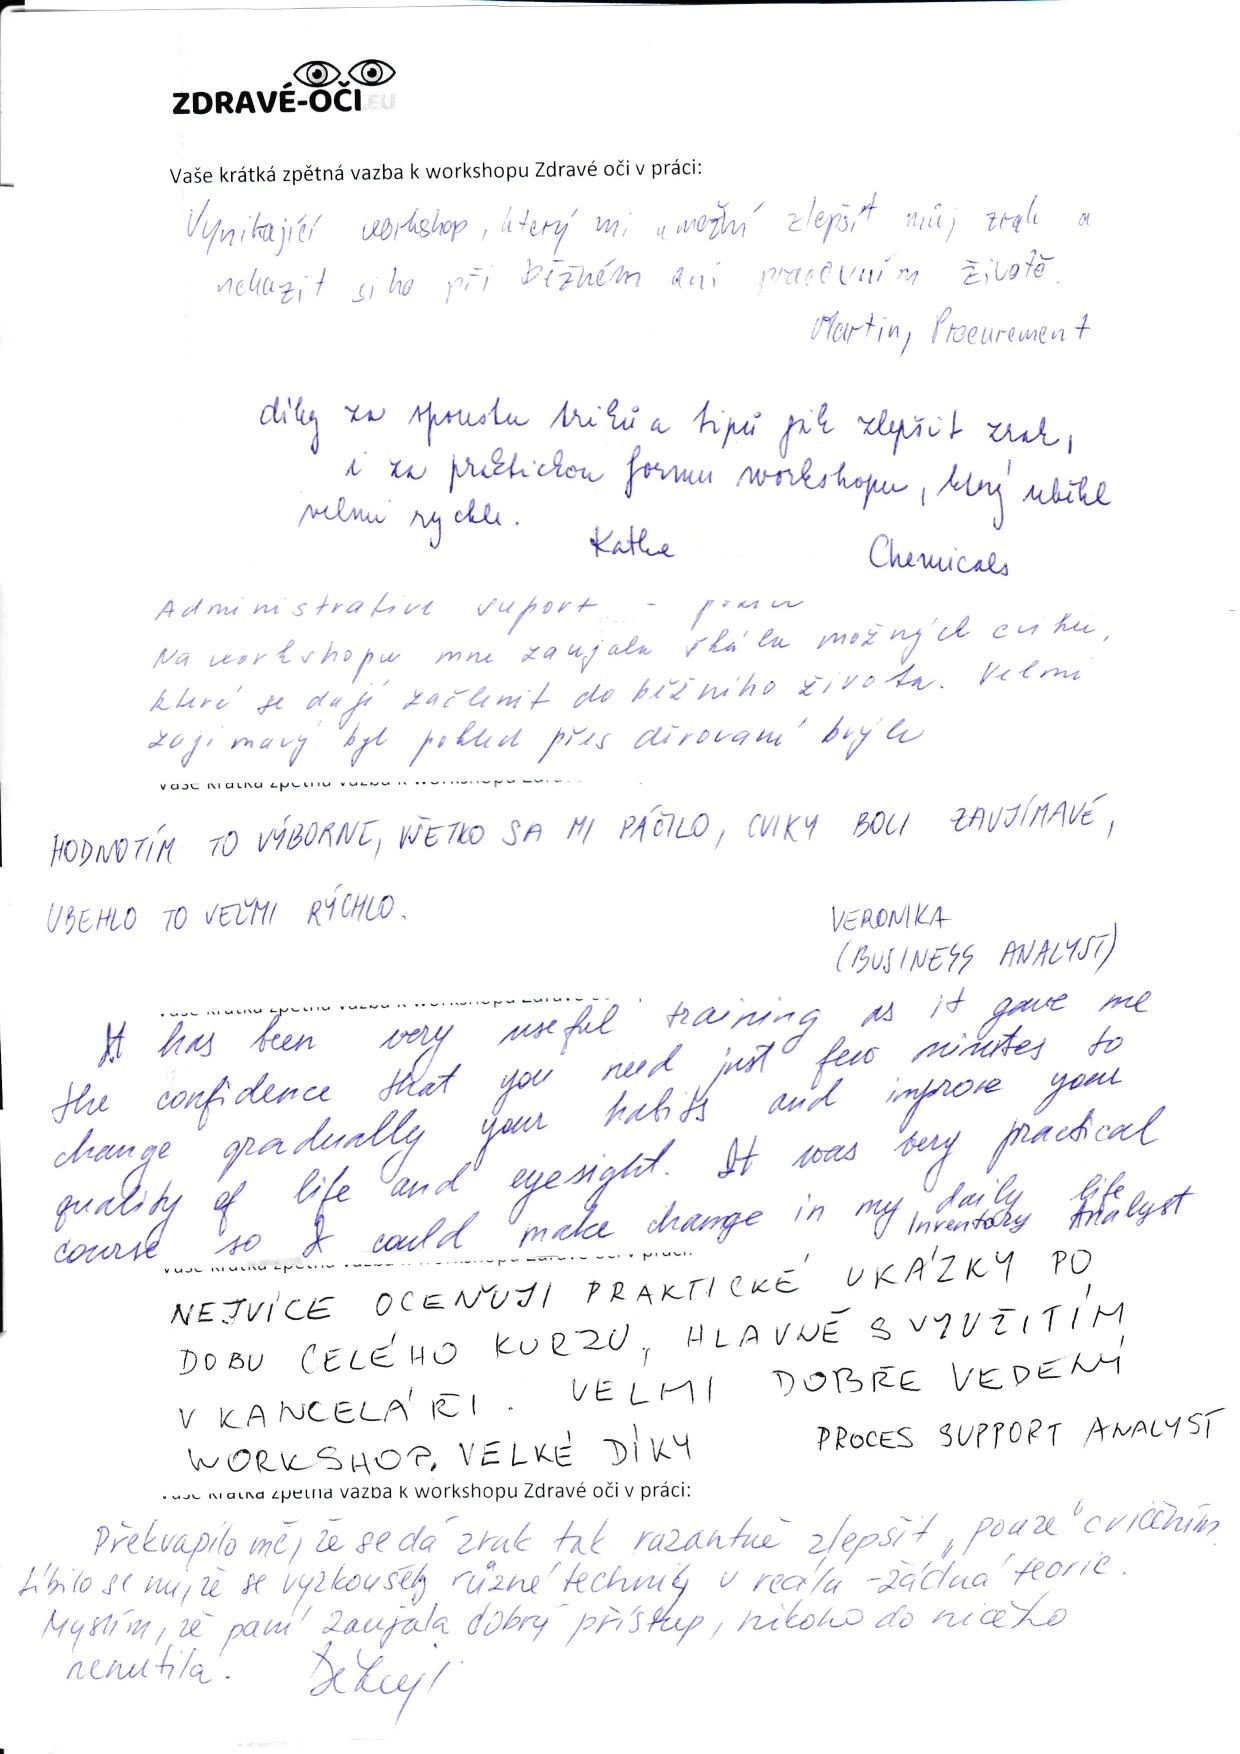 ZDRAVÉ-OČI.EU
Vaše krátká zpětná vazba k workshopu Zdravé oči v práci:
Vynikající workshop, který mi umožní zlepšit můj zrak a
nekazit si ho při běžném ani pracovním životě.
Martin, Procurement
díky za spoustu triků a tipů jak zlepšit zrak,
i za praktickou formu workshopu, který uběhl
velmi rychle.
Kathe Chemicals
Administrative suport -
Na workshopu mne zaujala škála možných cviků,
které se dají začlenit do běžného života. Velmi
zajímavý byl pohled přes děrované brýle
Vaše krátká zpětná vazba k workshopu Zdravé
HODNOTÍM TO VÝBORNE, VŠETKO SA MI PÁČILO, CVIKY BOLI ZAUJÍMAVÉ,
UBEHLO TO VEĽMI RÝCHLO.
VERONIKA
(BUSINESS ANALYST)
Vaše krátká zpětná vazba k workshopu Zdravé oči
It has been very useful training as it gave me
the confidence that you need just few minutes to
change gradually your habits and improve your
quality of life and eyesight. It was very practical
course so I could make change in my daily life
Inventory Analyst
Vaše krátká zpětná vazba k workshopu Zdravé oči v práci:
NEJVÍCE OCEŇUJI PRAKTICKÉ UKÁZKY PO
DOBU CELÉHO KURZU, HLAVNĚ S VYUŽITÍM
V KANCELÁŘI. VELMI DOBŘE VEDENÝ
WORKSHOP. VELKÉ DÍKY PROCES SUPPORT ANALYST
Vaše krátká zpětná vazba k workshopu Zdravé oči v práci:
Překvapilo mě, že se dá zrak tak razantně zlepšit „pouze" cvičením.
Líbilo se mi, že se vyzkoušely různé techniky v reálu - žádná teorie.
Myslím, že paní zaujala dobrý přístup, nikoho do ničeho
nenutila. Děkuji